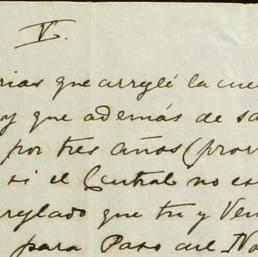 V.
rias que arreglé la cue
y que además de sa
por tres años (pror
si el Central no es
reglado que tu y Ven
para Paso del No